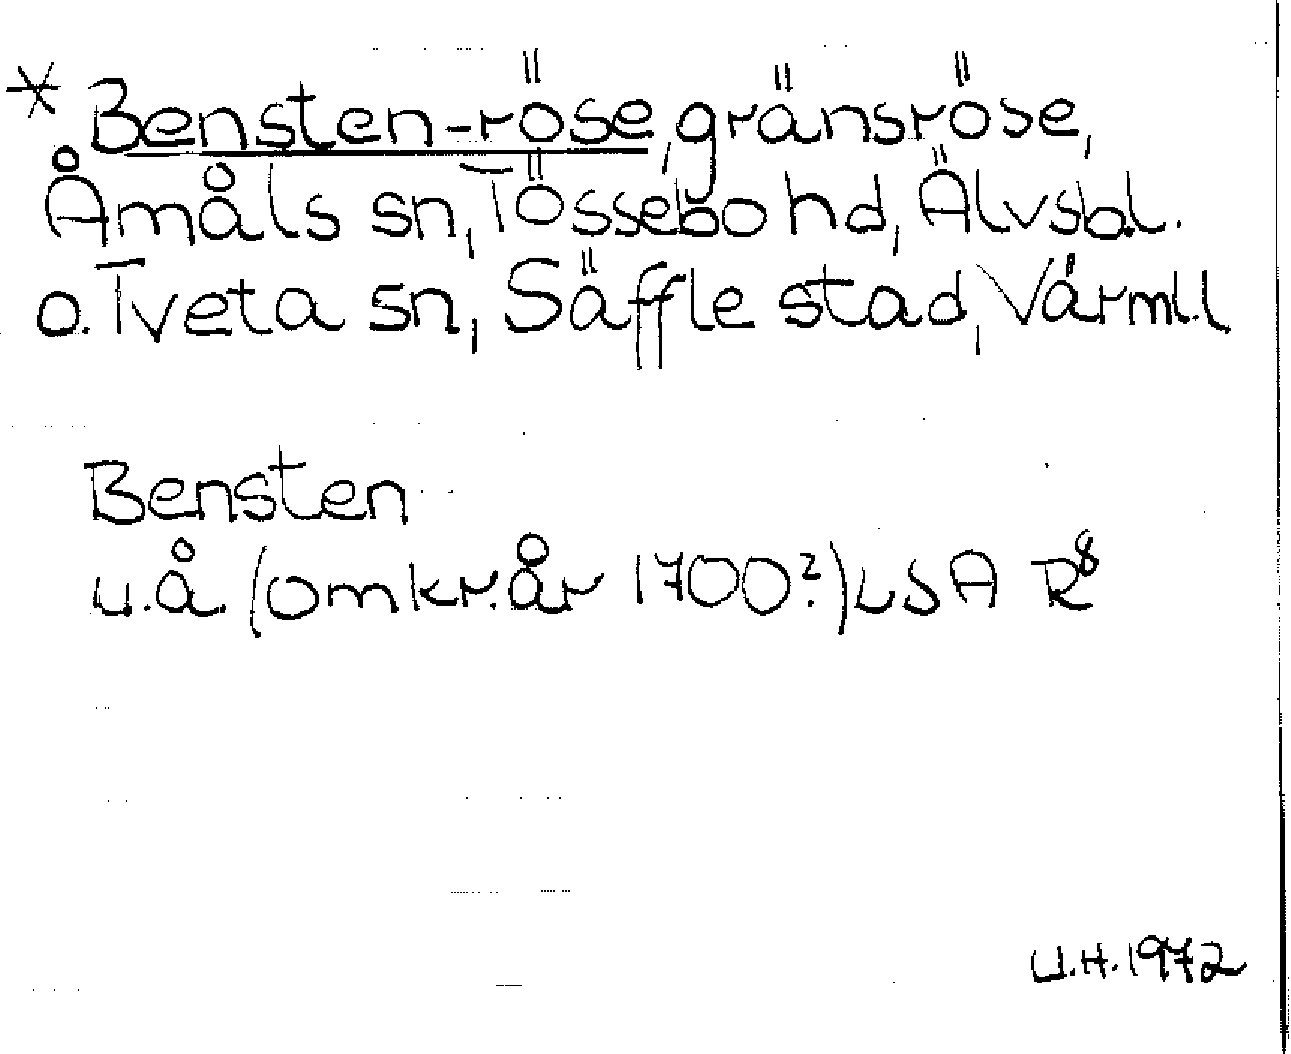 * Bensten-röse, gränsröse,
Åmåls sn, Tössebo hd, Älvsb.l.
o. Tveta sn, Säffle stad, Värml.l
Bensten
u.å. (omkr. år 1700?) LSA R⁸
U.H. 1972